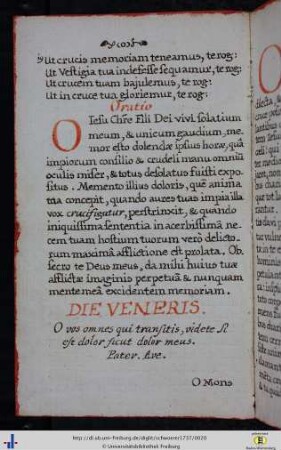 Ut crucis memoriam teneamus, te rog:
Ut Vestigia tua indefesse sequamur, te rog:
Ut crucem tuam bajulemus, te rog:
Ut in cruce tua gloriemur, te rog:
Oratio
O Iesu Chre Fili Dei vivi solatium
meum, & unicum gaudium, me
mor esto dolendæ ipsius horæ, quâ
impiorum consilio & crudeli manu omniũ
oculis miser, & totus desolatus fuisti expo
situs. Memento illius doloris, quẽ anima
tua concepit, quando aures tuas impia illa
vox crucifigatur, perstrinxit, & quando
iniquissima sententia in acerbissimã ne
cem tuam hostium tuorum verò delicto
rum maximâ afflictione est prolata. Ob
secro te Deus meus, da mihi huius tuæ
afflictæ imaginis perpetuã & nunquam
mente meâ excidentem memoriam.
DIE VENERIS.
O vos omnes qui transitis, videte si
est dolor sicut dolor meus.
Pater. Ave.
O Mons
http://dl.ub.uni-freiburg.de/diglit/schwoerer1737/0020
© Universitätsbibliothek Freiburg